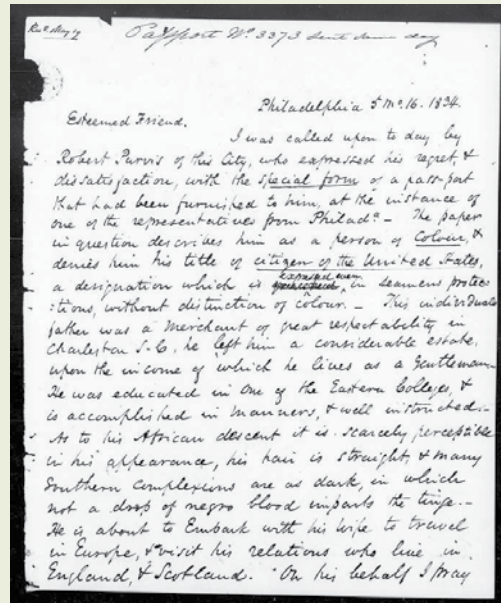 Recd. May 17
Passport No. 3373 sent same day
Philadelphia 5 Mo. 16. 1834.
Esteemed Friend.
I was called upon to day by
Robert Purvis of this City, who expressed his regret, &
dissatisfaction, with the special form of a pass-port
that had been furnished to him, at the instance of
one of the representatives from Philada. – The paper
in question describes him as a person of Colour, &
denies him his title of citizen of the United States,
a designation which is expressed even in seamens protec
:tions, without distinction of colour. – This individuals
father was a Merchant of great respectability in
Charleston S.C. he left him a considerable estate,
upon the income of which he lives as a Gentleman –
He was educated in One of the Eastern Colleges, &
is accomplished in manners, & well instructed. –
As to his African descent it is scarcely perceptible
in his appearance, his hair is straight, & many
Southern Complexions are as dark, in which
not a drop of negro blood imparts the tinge. –
He is about to Embark with his wife to travel
in Europe, & visit his relations who live in
England, & Scotland. On his behalf I pray